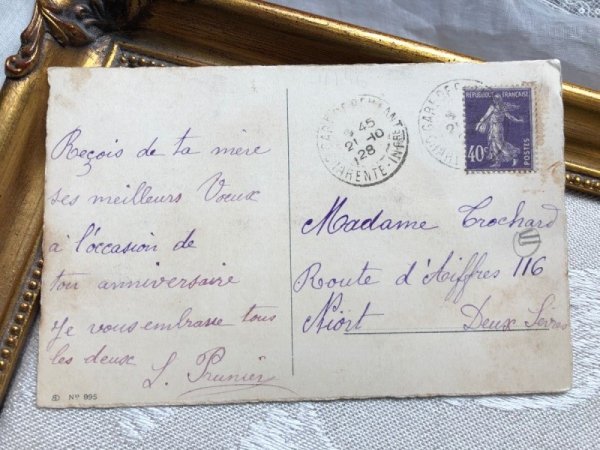 Reçois de ta mère
ses meilleurs Voeux
à l'occasion de
ton anniversaire
Je vous embrasse tous
les deux
L. Prunier
Nº 995
GARE DE
45
21-10
28
CHARENTE-INFRE
GARE DE
REPUBLIQUE FRANÇAISE
40c
POSTES
Madame Trochard
Route d'Aiffres 116
Niort Deux Sèvres